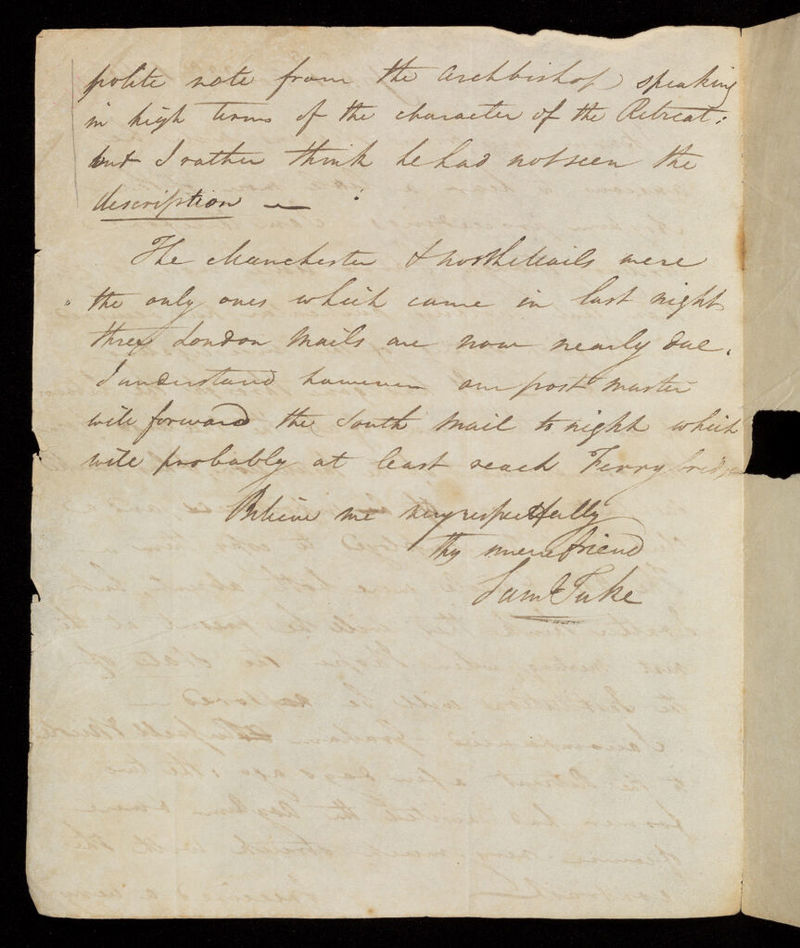 polite note from the Archbishop speaking
in high terms of the character of the Retreat:
but I rather think he had not seen the
description —
The Manchester & north Mails were
the only ones which came in last night
three London Mails are now nearly due.
I understand however our post master
will forward the South Mail to night which
will probably at least reach Ferrybridge
Believe me very respectfully
thy sincere friend
Saml Tuke